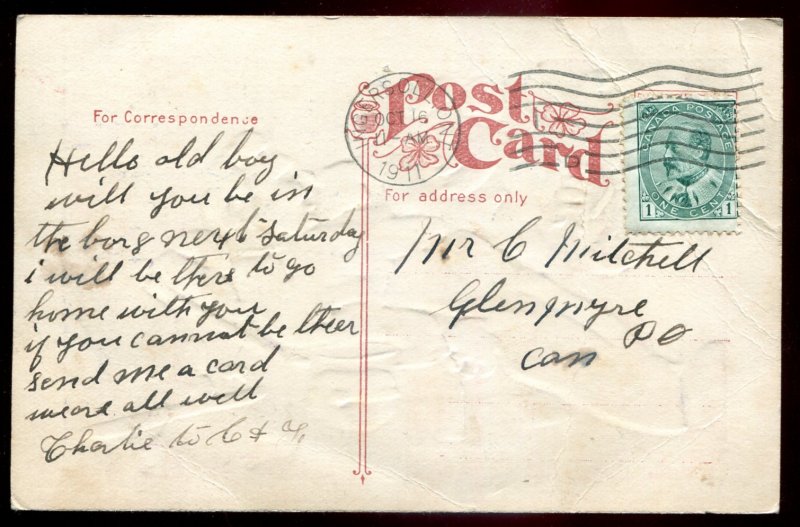 Post Card
For Correspondence
For address only
INGERSOLL ONT
OCT 16
AM
1911
CANADA POSTAGE
1 ONE CENT 1
Hello old boy
will you be in
the borg next Saturday
i will be there to go
home with you
if you cannot be theer
send me a card
weare all well
Charlie to C &
Mr C Mitchell
Glenmyre
PO
Can